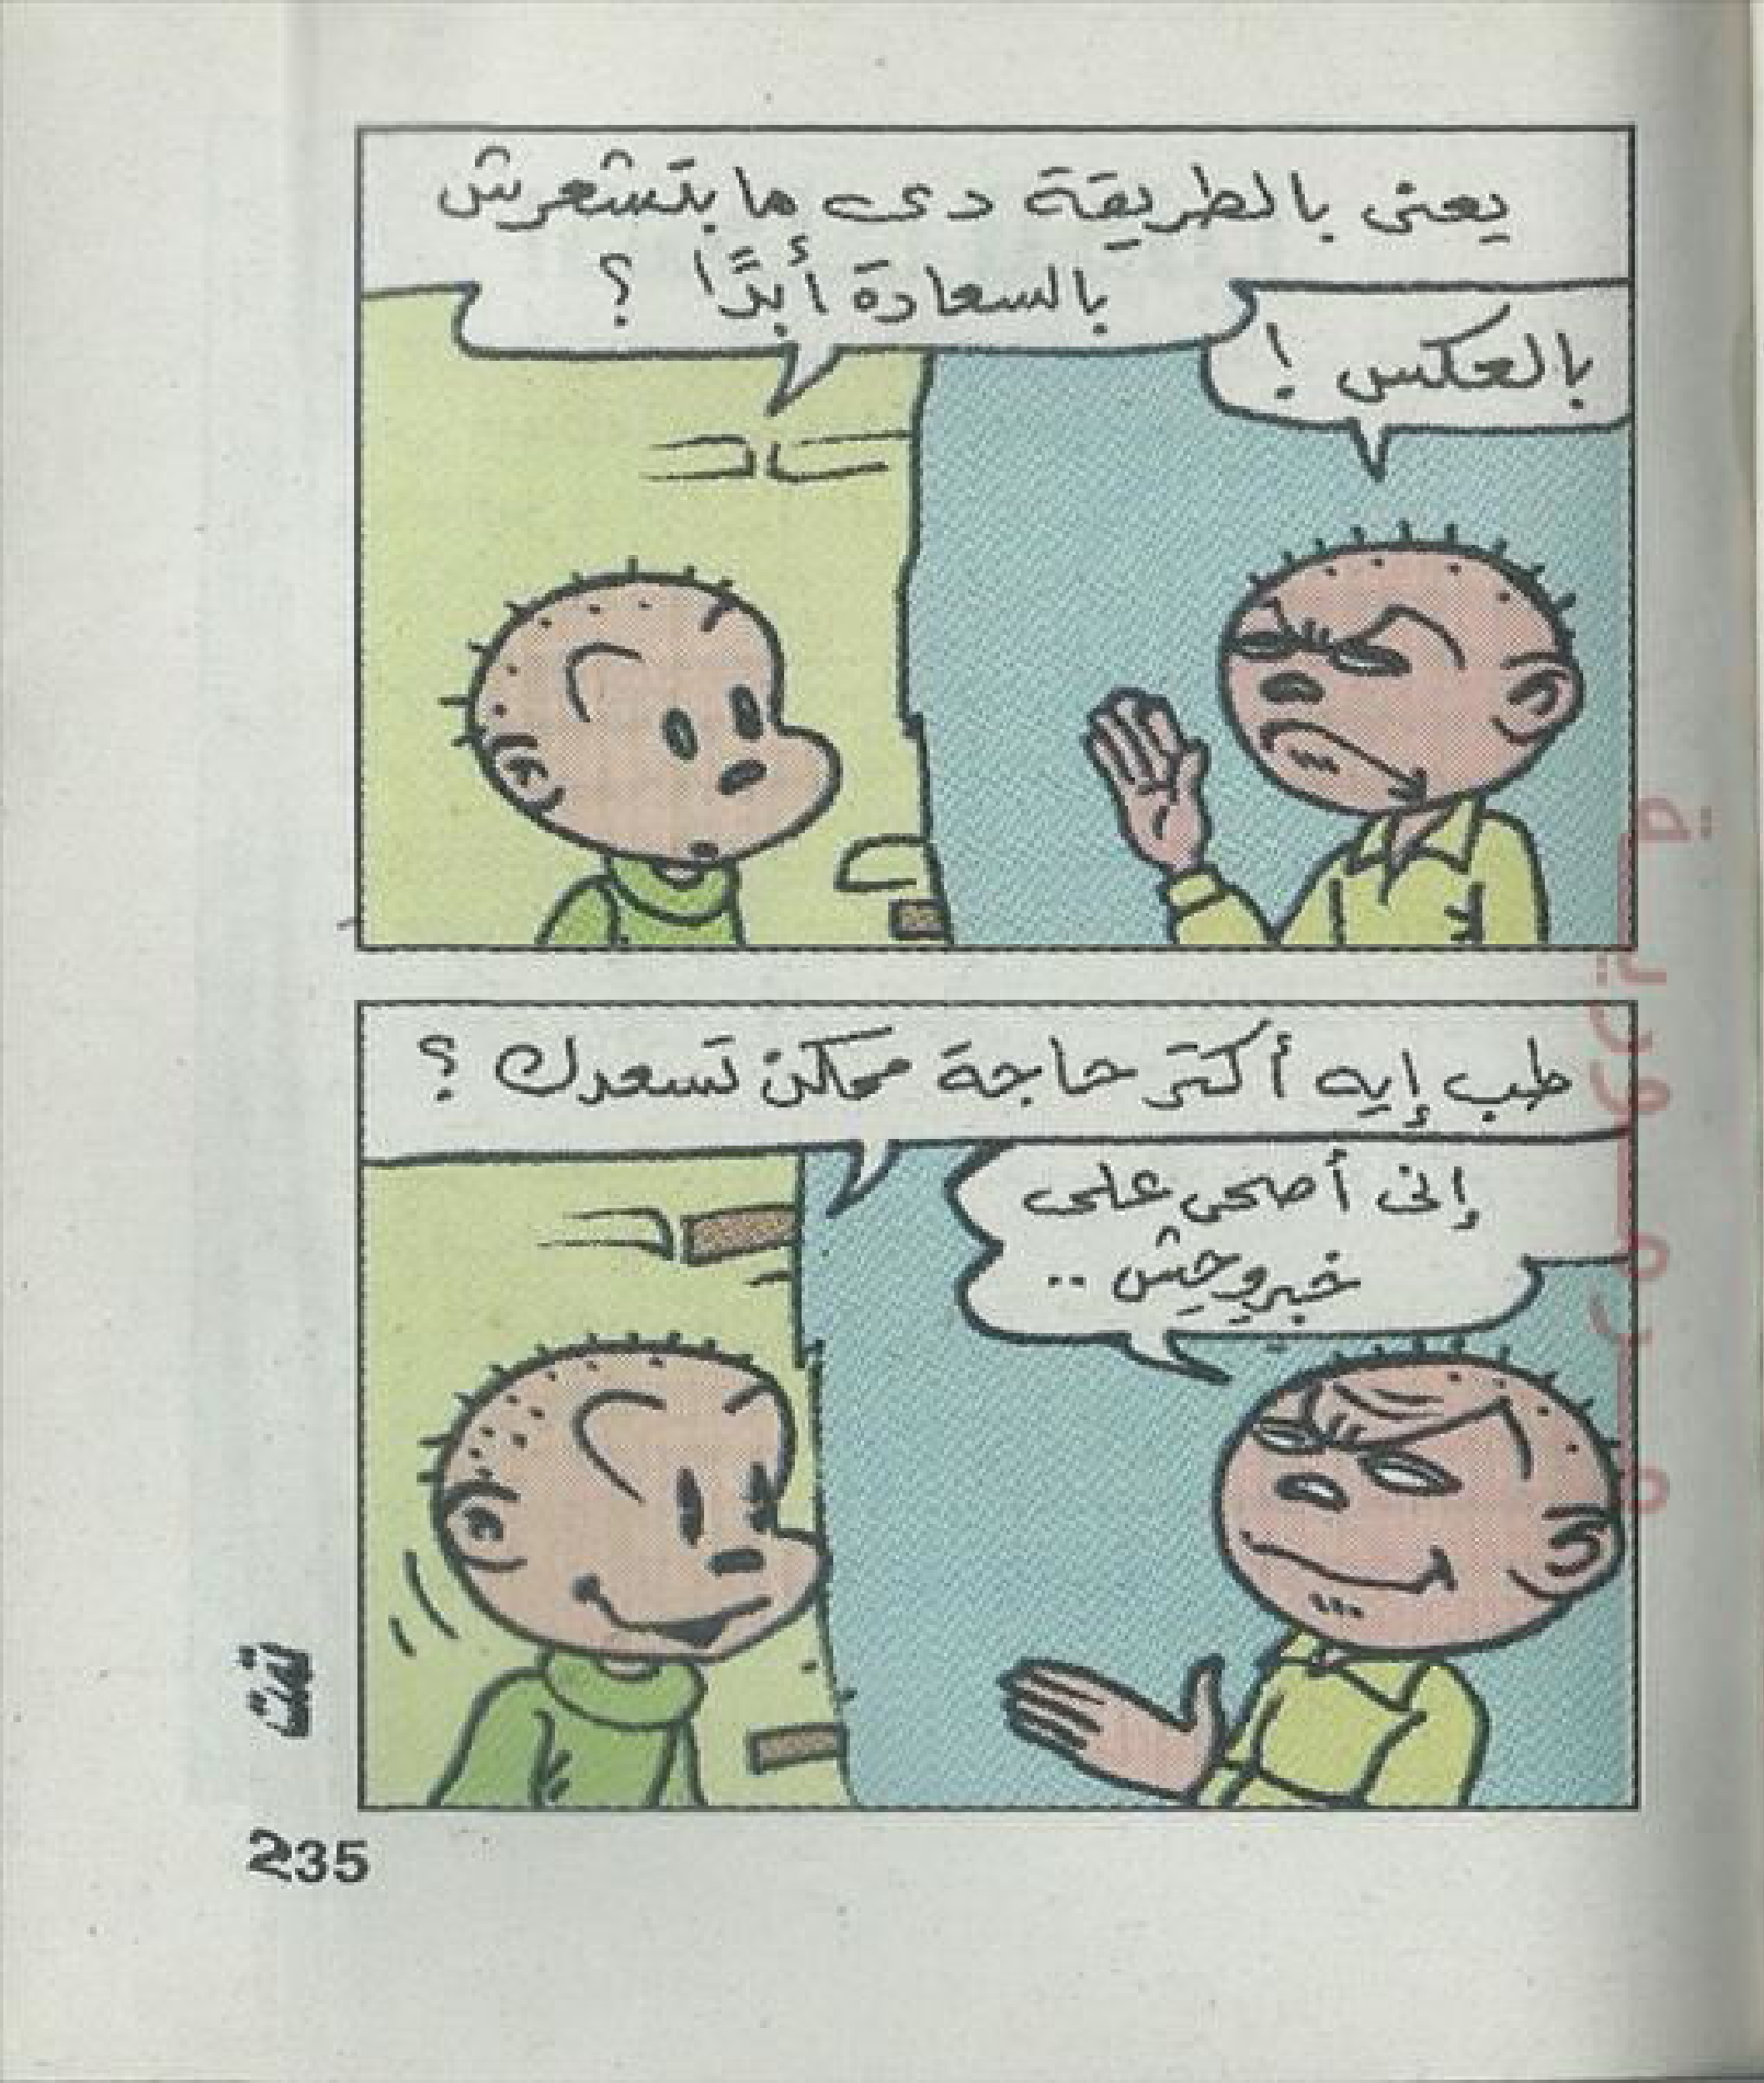 يعنى بالطريقة دى ما بتشعرش
بالسعادة أبدًا ؟
بالعكس !
طب إيه أكتر حاجة ممكن تسعدك ؟
إنى أصحى على
خبر وحش ..
235